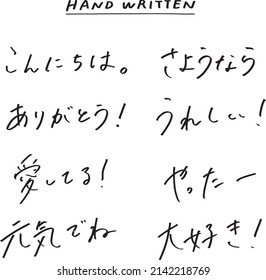 HAND WRITTEN
こんにちは。 さようなら
ありがとう! うれしい!
愛してる! やったー
元気でね 大好き!
shutterstock.com · 2142218769